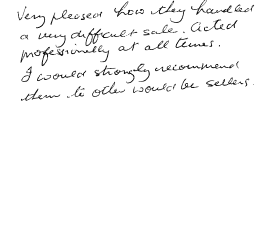 Very pleased how they handled
a very difficult sale. Acted
professionally at all times.
I would strongly recommend
them to other would be sellers.